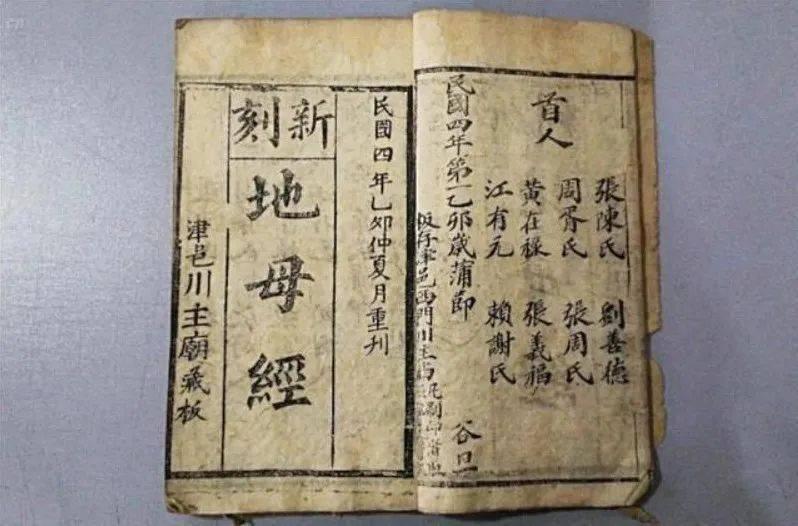 首人
張陳氏 劉善德
周胥氏 張周氏
黃在祿 張義福
江有元 賴謝氏
民國四年第一乙卯歲蒲節 谷旦
板存津邑西門川主廟
民國四年乙卯仲夏月重刊
新刻
地母經
津邑川主廟藏板